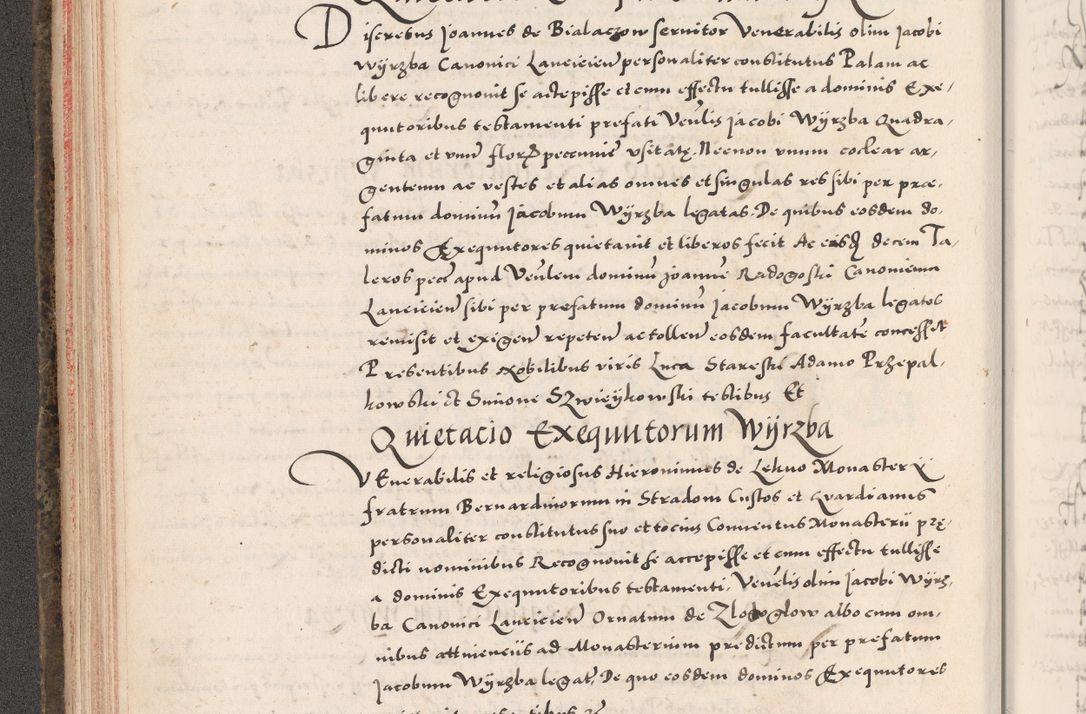 Discretus Joannes de Bialaczow servitor Venerabilis olim Jacobi
Wÿrzba Canonici Lanciciens personaliter constitutus Palam ac
libere recognovit se accepisse et cum effectu tullisse a dominis Exe-
quutoribus testamenti prefati Venlis Jacobi Wÿrzba Quadra-
ginta et unum flor peccunie usitatę. Necnon unum coclear ar-
genteum ac vestes et alias omnes et singulas res sibi per præ-
fatum dominum Jacobum Wÿrzba legatas. De quibus eosdem do-
minos Exequutores quietavit et liberos fecit Ac eisd decem Ta-
leros pecc apud Venlem dominum Joannem Radogoski Canonicum
Lancicien sibi per prefatum dominum Jacobum Wÿrzba legatos
remisit et exigen repeten ac tollen eosdem facultatem concessit
Presentibus Nobilibus viris Luca Stareski Adamo Przepal-
kowski et Simone Szwieykowski testibus Et
Quietacio Exequutorum Wÿrzba
VEnerabilis et religiosus Hieronimus de Lekno Monasterii
fratrum Bernardinorum in Stradom Custos et Gvardianus
personaliter constitutus suo et tocius Conventus Monasterii prę-
dicti nominibus Recognovit se accepisse et cum effectu tullisse
a dominis Exequutoribus testamenti, Venelis olim Jacobi Wÿrz-
ba Canonici Lancicien Ornatum de Zlotoglow albo cum om-
nibus attinenciis ad Monasterium predictum per prefatum
Jacobum Wÿrzba legat, De quo eosdem dominos Exequutores